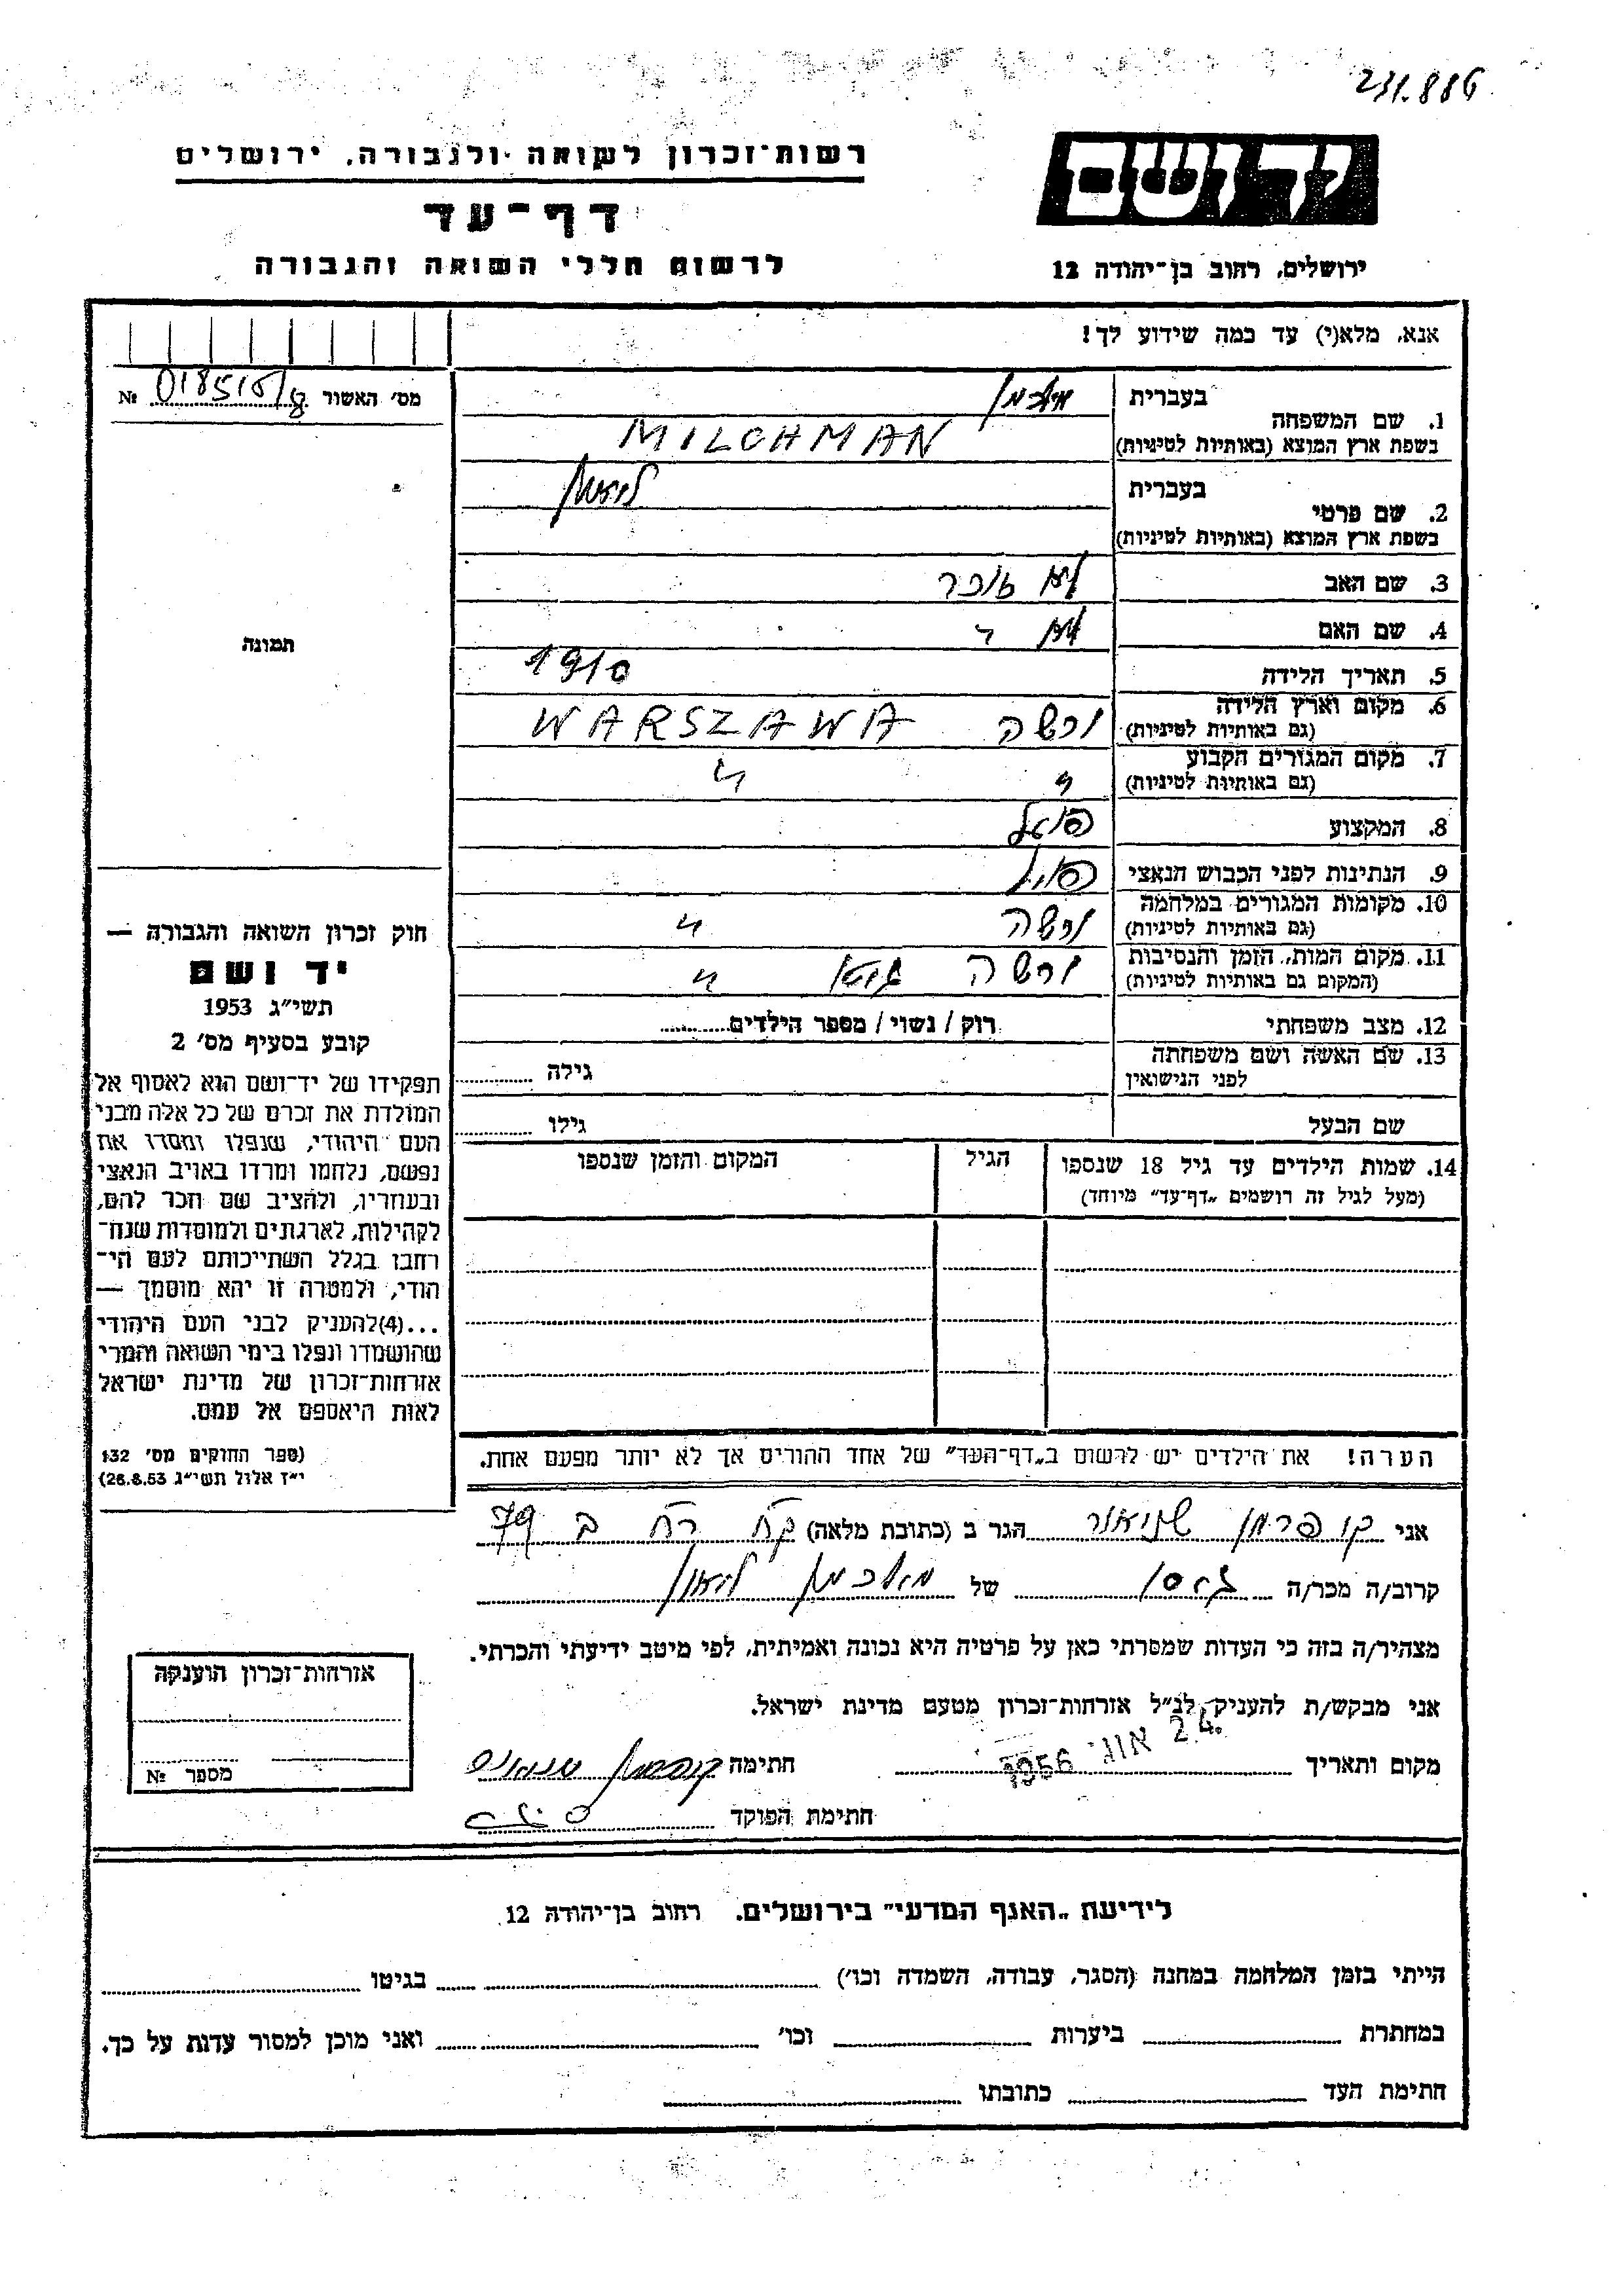 231.886
יד ושם
רשות-זכרון לשואה ולגבורה, ירושלים
דף-עד
לרשום חללי השואה והגבורה
ירושלים, רחוב בן-יהודה 12
אנא, מלא(י) עד כמה שידוע לך!
מס׳ האשור № 018515/
1. שם המשפחה
בעברית מילכמן
בשפת ארץ המוצא (באותיות לטיניות) MILCHMAN
2. שם פרטי
בעברית
בשפת ארץ המוצא (באותיות לטיניות)
3. שם האב לא זוכר
4. שם האם לא
5. תאריך הלידה 1910
6. מקום וארץ הלידה (גם באותיות לטיניות) ורשה WARSZAWA
7. מקום המגורים הקבוע (גם באותיות לטיניות) " "
8. המקצוע פועל
9. הנתינות לפני הכבוש הנאצי פולין
10. מקומות המגורים במלחמה (גם באותיות לטיניות) ורשה "
11. מקום המות, הזמן והנסיבות (המקום גם באותיות לטיניות) ורשה גיטו "
12. מצב משפחתי רוק / נשוי / מספר הילדים
13. שם האשה ושם משפחתה לפני הנישואין גילה
שם הבעל גילו
14. שמות הילדים עד גיל 18 שנספו (מעל לגיל זה רושמים „דף-עד” מיוחד)
הגיל
המקום והזמן שנספו
הערה! את הילדים יש לרשום ב„דף-העד” של אחד ההורים אך לא יותר מפעם אחת.
תמונה
חוק זכרון השואה והגבורה —
יד ושם
תשי״ג 1953
קובע בסעיף מס׳ 2
תפקידו של יד-ושם הוא לאסוף אל
המולדת את זכרם של כל אלה מבני
העם היהודי, שנפלו ומסרו את
נפשם, נלחמו ומרדו באויב הנאצי
ובעוזריו, ולהציב שם וזכר להם,
לקהילות, לארגונים ולמוסדות שנח-
רבו בגלל השתייכותם לעם הי-
הודי, ולמטרה זו יהא מוסמך —
...(4)להעניק לבני העם היהודי
שהושמדו ונפלו בימי השואה והמרי
אזרחות-זכרון של מדינת ישראל
לאות היאספם אל עמם.
(ספר החוקים מס׳ 132
י״ז אלול תשי״ג 26.8.53)
אני קופרמן שניאור הגר ב (כתובת מלאה) 79
קרוב/ה מכר/ה גיסו של מילכמן
מצהיר/ה בזה כי העדות שמסרתי כאן על פרטיה היא נכונה ואמיתית, לפי מיטב ידיעתי והכרתי.
אני מבקש/ת להעניק לנ״ל אזרחות-זכרון מטעם מדינת ישראל.
מקום ותאריך 24. אוג׳ 1956 חתימה
חתימת הפוקד
אזרחות-זכרון הוענקה
מספר №
לידיעת „האגף המדעי” בירושלים, רחוב בן-יהודה 12
הייתי בזמן המלחמה במחנה (הסגר, עבודה, השמדה וכו׳) בגיטו
במחתרת ביערות וכו׳ ואני מוכן למסור עדות על כך.
חתימת העד כתובתו